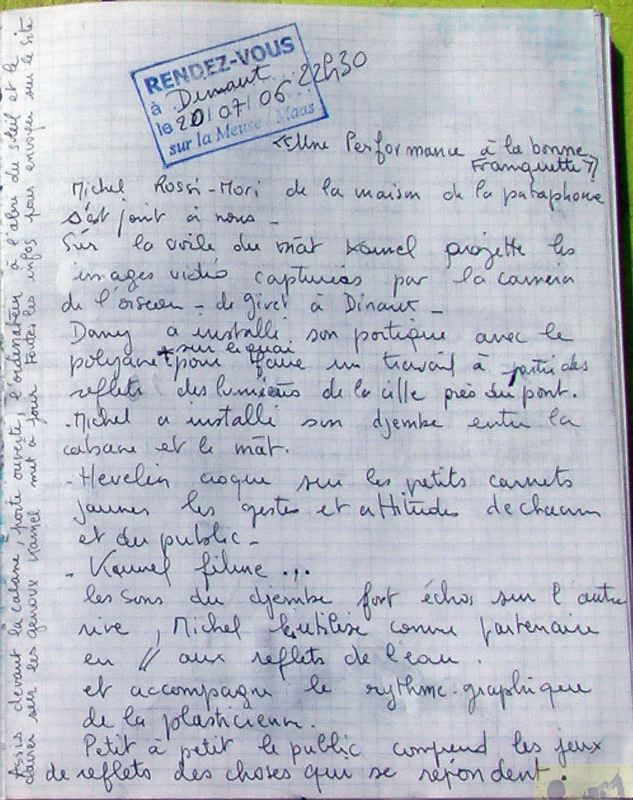 RENDEZ-VOUS
à Dinant 22h30
le 20/07/06
sur la Meuse / Maas
"Une Performance à la bonne
Franquette"
Michel Rossi-Mori de la maison de la pataphonie
s'est joint à nous -
Sur la voile du mât Kamel projette les
images vidéo capturées par la caméra
de l'oiseau - de Givet à Dinant -
Dany a installé son portique avec le
polyane + sur le quai pour faire un travail à partir des
reflets des lumières de la ville près du pont.
- Michel a installé son djembe entre la
cabane et le mât.
- Hevelin croque sur les petits carnets
jaunes les gestes et attitudes de chacun
et du public -
- Kamel filme ...
les sons du djembe font échos sur l'autre
rive, Michel l'utilise comme partenaire
en // aux reflets de l'eau.
et accompagne le rythme-graphique
de la plasticienne.
Petit à petit le public comprend les jeux
de reflets des choses qui se répondent.
Assis devant la cabane, porte ouverte, l'ordinateur à l'abri du soleil et le
clavier sur les genoux Kamel met à jour toutes les infos pour envoyer sur le site